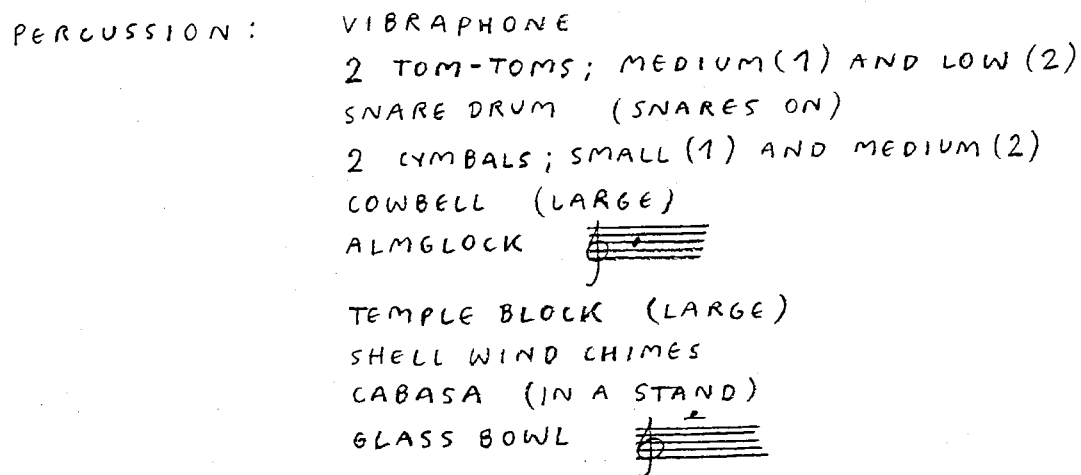 PERCUSSION: VIBRAPHONE
2 TOM-TOMS; MEDIUM(1) AND LOW (2)
SNARE DRUM (SNARES ON)
2 CYMBALS; SMALL (1) AND MEDIUM (2)
COWBELL (LARGE)
ALMGLOCK
TEMPLE BLOCK (LARGE)
SHELL WIND CHIMES
CABASA (IN A STAND)
GLASS BOWL